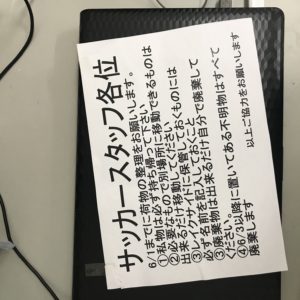 サッカースタッフ各位
6/1までに荷物の整理をお願いします。
①私物は必ず持ち帰って下さい
②必要なもので別場所に移動できるものは
出来るだけ移動してください
③バイクサイドに保管しておくものには
必ず名前を記入しておくこと
③廃棄物は出来るだけ自分で廃棄して
ください。
④6/3以降に置いてある不明物はすべて
廃棄します
以上ご協力をお願いします